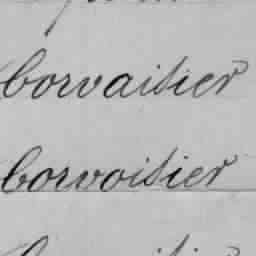 Corvaisier
Corvoisier